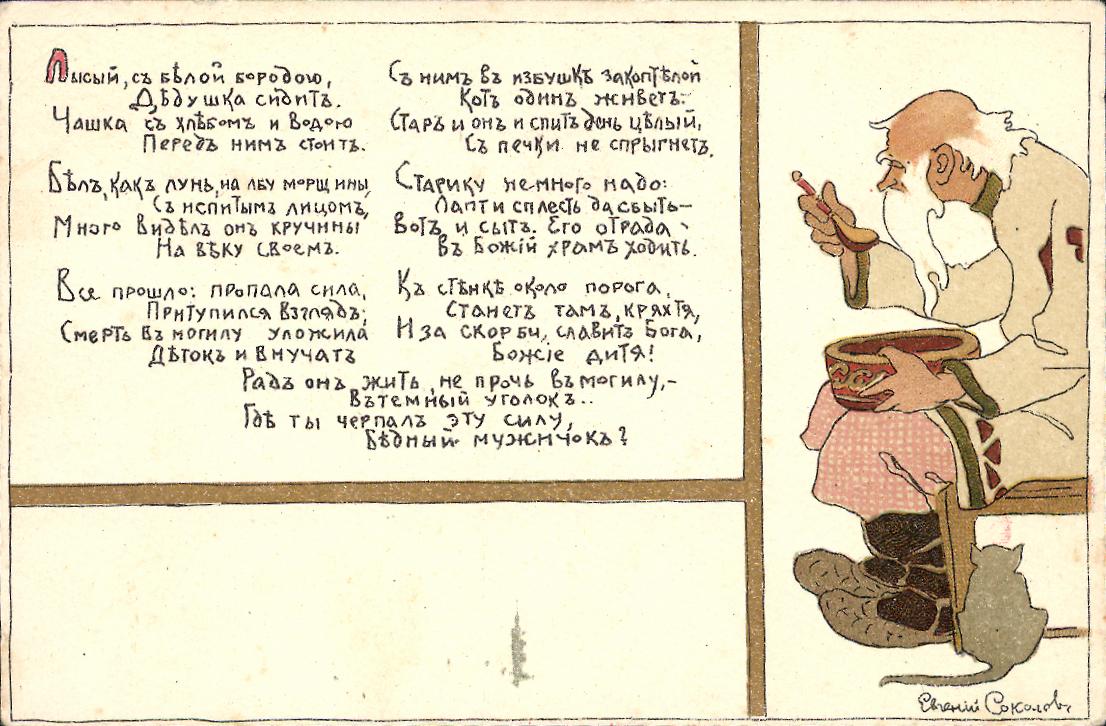 Лысый, съ бѣлой бородою,
Дѣдушка сидитъ.
Чашка съ хлѣбомъ и водою
Передъ нимъ стоитъ.
Бѣлъ, какъ лунь, на лбу морщины,
Съ испитымъ лицомъ,
Много видѣлъ онъ кручины
На вѣку своемъ.
Все прошло: пропала сила,
Притупился взглядъ;
Смерть въ могилу уложила
Дѣтокъ и внучатъ
Съ нимъ въ избушкѣ закоптѣлой
Котъ одинъ живетъ:
Старъ и онъ и спитъ день цѣлый,
Съ печки не спрыгнетъ.
Старику немного надо:
Лапти сплесть да сбыть—
Вотъ и сытъ. Его отрада -
Въ Божій храмъ ходить.
Къ стѣнкѣ около порога,
Станетъ тамъ, кряхтя,
И за скорби, славитъ Бога,
Божіе дитя!
Радъ онъ жить, не прочь въ могилу,-
Въ темный уголокъ..
Гдѣ ты черпалъ эту силу,
Бѣдный мужичокъ?
Евгеній Соколовъ